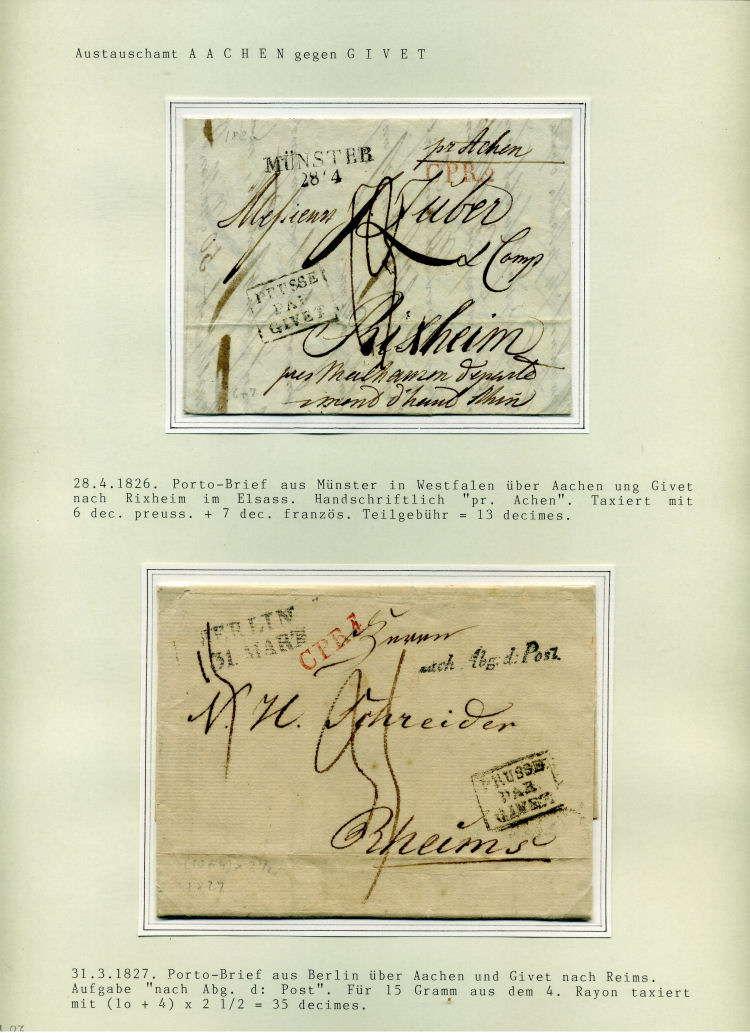 Austauschamt A A C H E N gegen G I V E T
1826
MÜNSTER
28 4
pr Achen
CPR2
Messieurs J. Zuber
& Comp
PRUSSE
PAR
GIVET
Rixheim
pres Mulhausen departe
ment d'haut Rhin
28.4.1826. Porto-Brief aus Münster in Westfalen über Aachen ung Givet
nach Rixheim im Elsass. Handschriftlich "pr. Achen". Taxiert mit
6 dec. preuss. + 7 dec. französ. Teilgebühr = 13 decimes.
BERLIN
31. MART
CPR4
Herrn
nach Abg. d: Post.
N. H. Schreider
PRUSSE
PAR
GIVET
Rheims
1827
31.3.1827. Porto-Brief aus Berlin über Aachen und Givet nach Reims.
Aufgabe "nach Abg. d: Post". Für 15 Gramm aus dem 4. Rayon taxiert
mit (1o + 4) x 2 1/2 = 35 decimes.